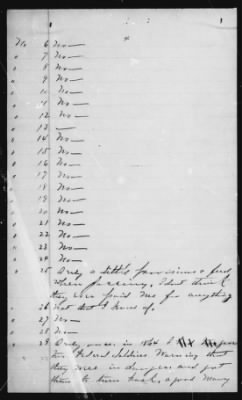 No 6 No—
" 7 No—
" 8 No—
" 9 No—
" 10 No—
" 11 No—
" 12 No—
" 13 —
" 14 No—
" 15 No—
" 16 No—
" 17 No—
" 18 No—
" 19 No—
" 20 No—
" 21 No—
" 22 No—
" 23 No—
" 24 No—
" 25 Only a little provisions & feed
when passing. I dont think
they ever paid me for anything
" 26 Not that I know of.
" 27 No—
" 28 No—
" 29 Only once, in 1864 I
Federal Soldiers. Warning that
they were in danger and got
them to turn back, a good many